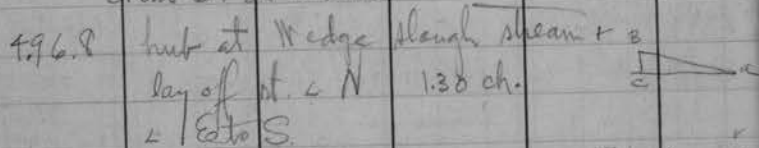 496.8 hub at W edge slough stream + B
lay off rt. ∠ N 1.30 ch. C a
∠ E to S.